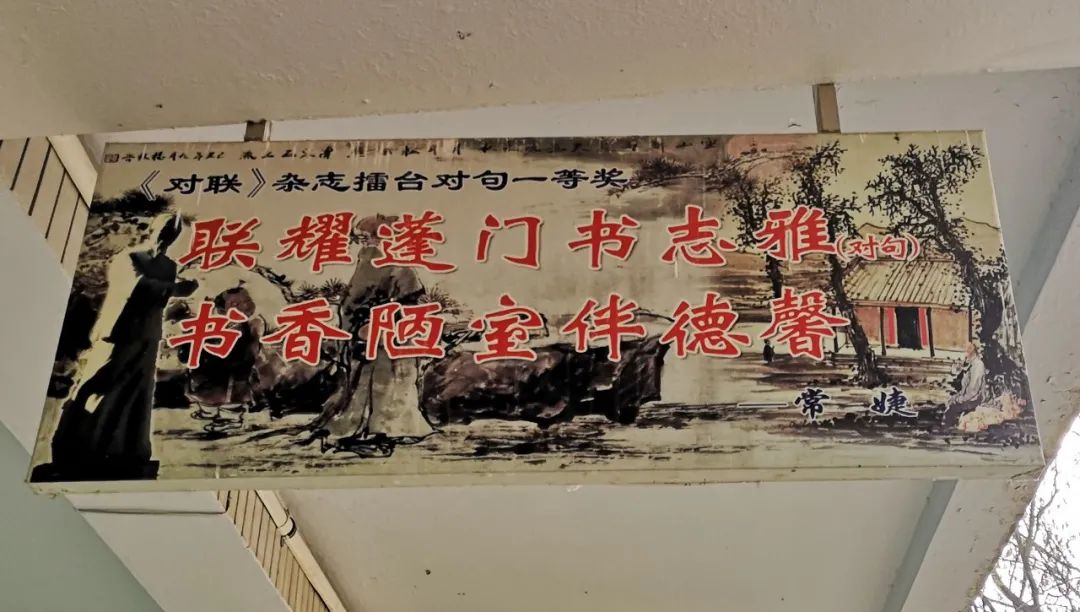 《对联》杂志擂台对句一等奖
联耀蓬门书志雅(对句)
书香陋室伴德馨
常婕